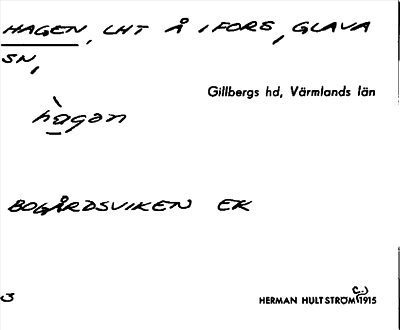 HAGEN, LHT Å IFORS, GLAVA
SN,
Gillbergs hd, Värmlands län
hàgan
BOGÅRDSVIKEN EK
3
HERMAN HULTSTRÖM (C..) 1915